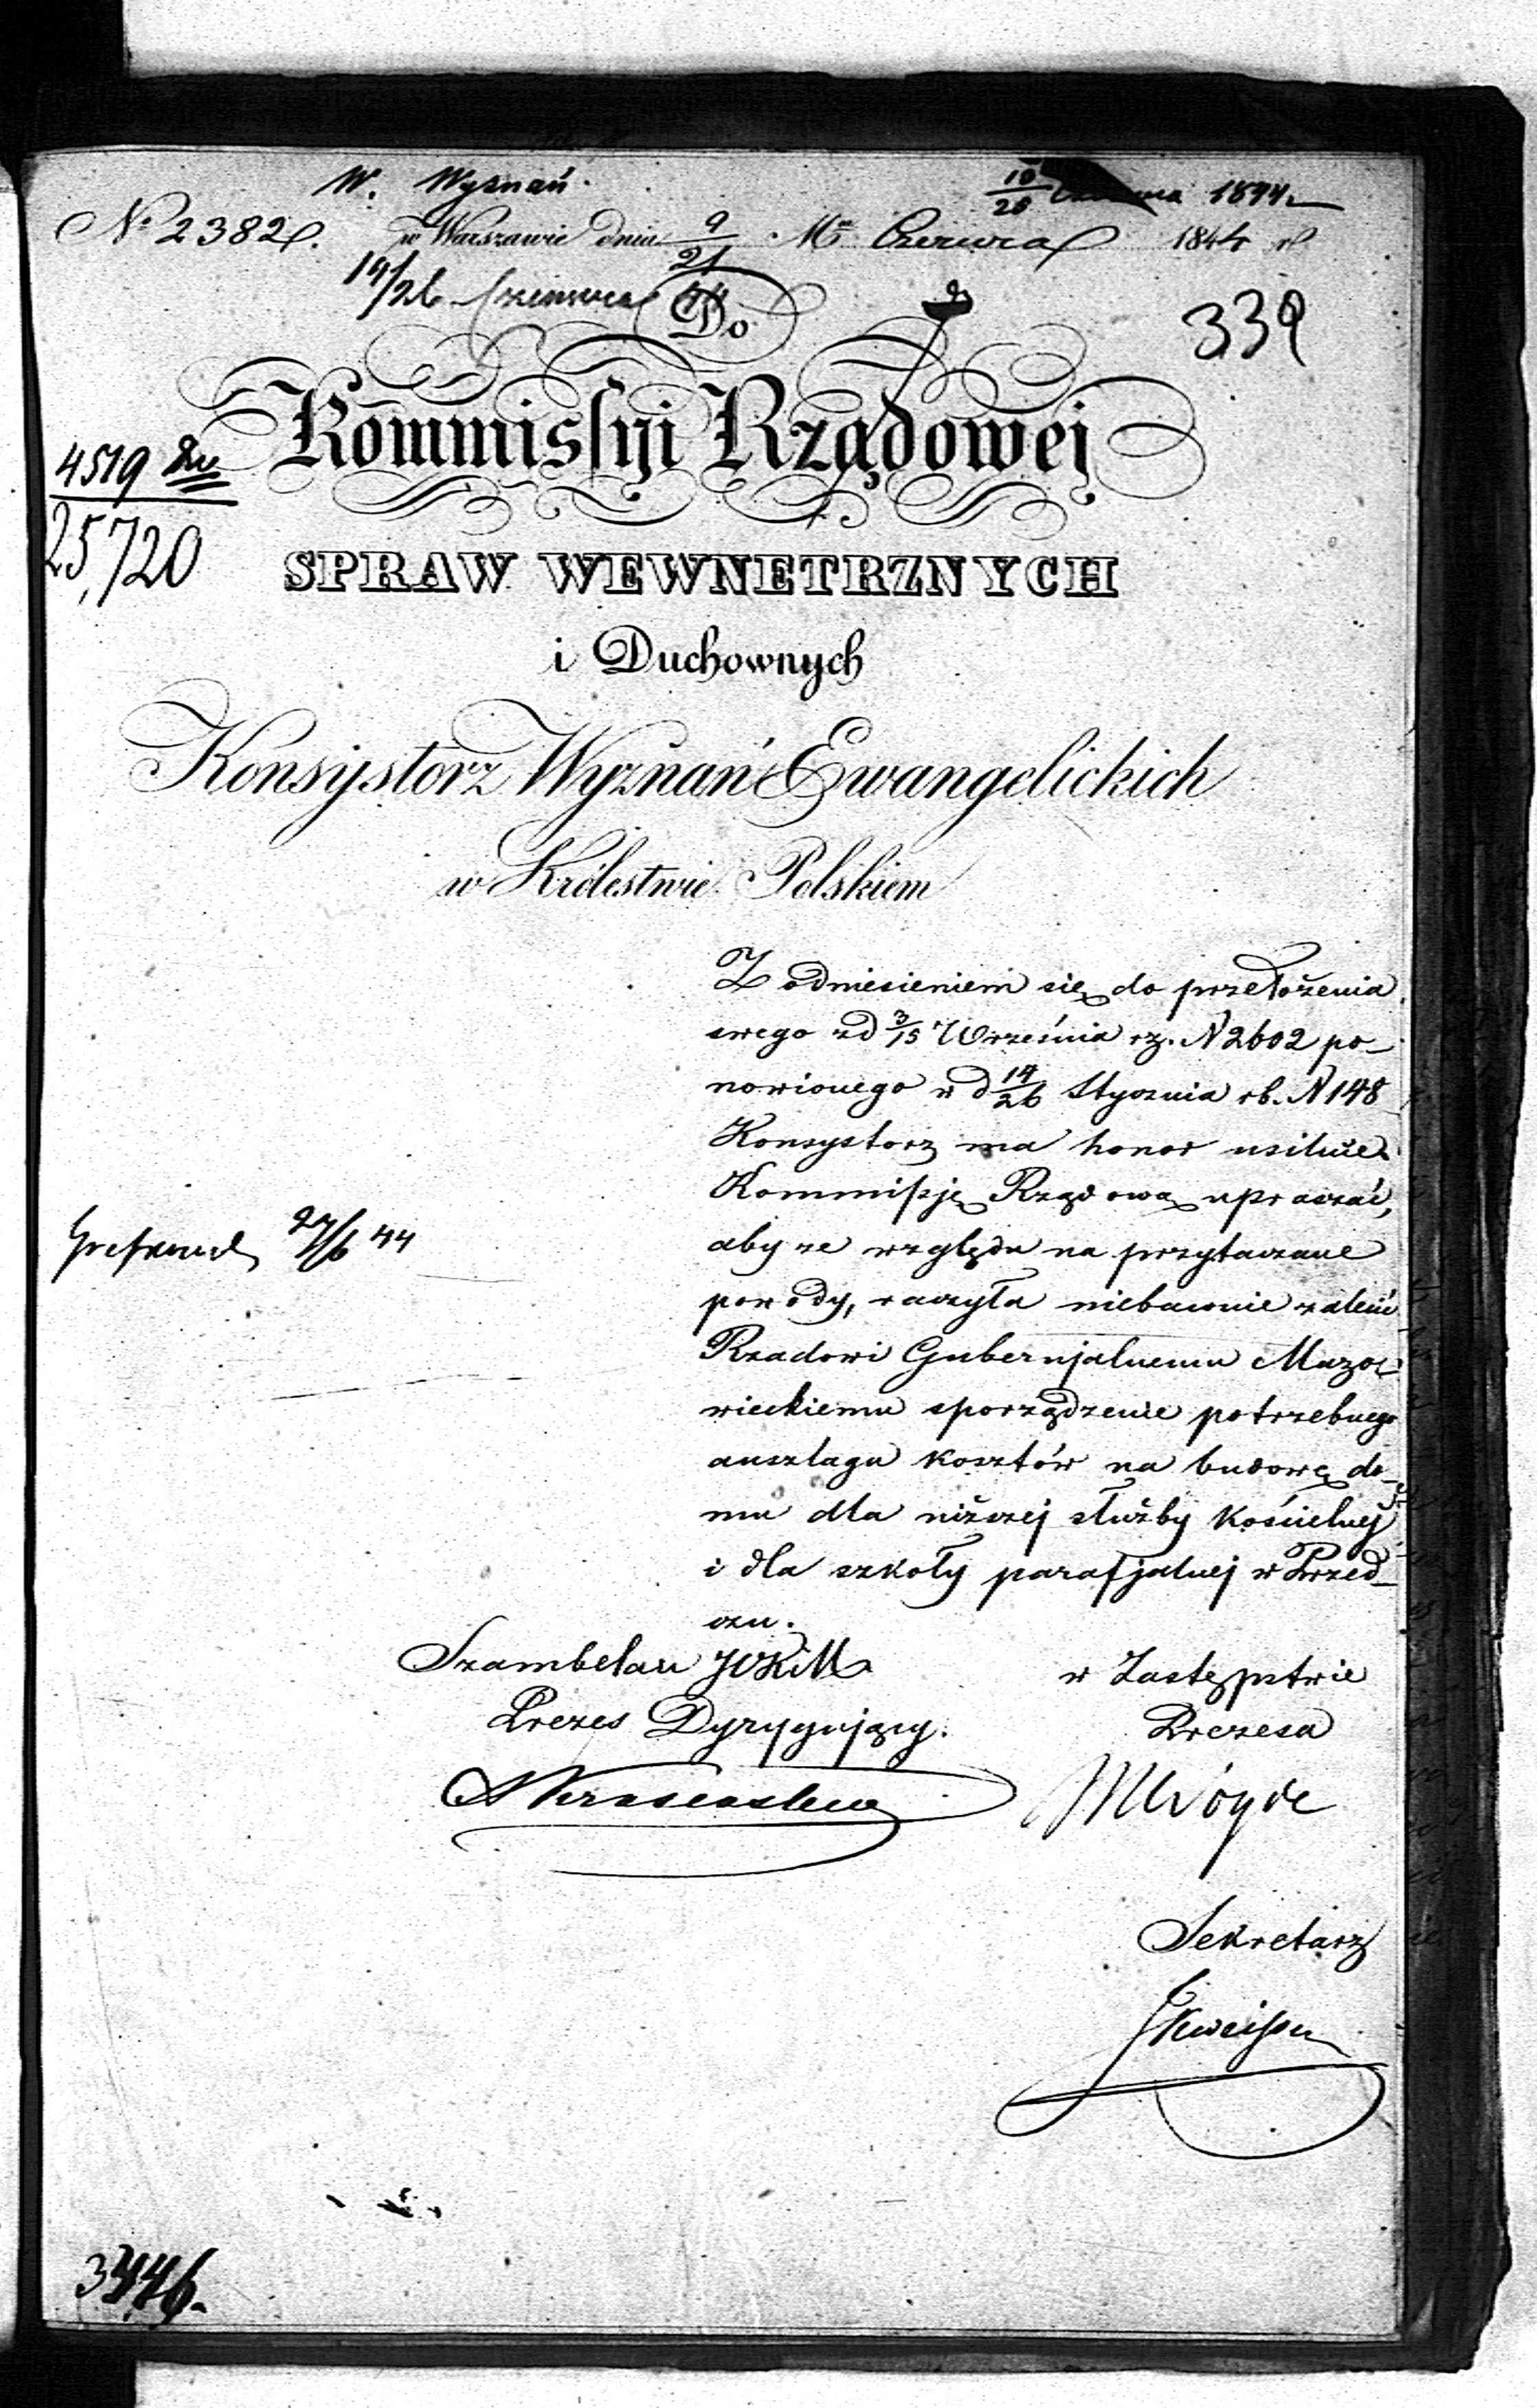 W. Wyznań.
10/20 1844
No 2382. w Warszawie dnia 9/21 Ma Czerwca 1844 r
14/26 Czerwca 44
Do
339
Kommissyi Rządowej
4519
25,720
SPRAW WEWNETRZNYCH
i Duchownych
Konsystorz Wyznań Ewangelickich
w Królestwie Polskiem
Z odniesieniem się do przełożenia
swego z d 3/15 Września rz. N 2602 po-
nowionego w d 14/26 Stycznia rb. N 148
Konsystorz ma honor usilnie
Kommissję Rządową upraszać,
aby ze względu na przytaczane
powody, raczyła niebawnie zalecić
Rządowi Gubernjalnemu Mazo-
wieckiemu sporządzenie potrzebnego
anszlagu kosztów na budowę do-
mu dla niższej służby Kościelnej
i dla szkoły parafjalnej w Przed-
czu.
27/6 44
Szambelan JCKM
w Zastępstwie
Prezes Dyrygujący.
Prezesa
Sekretarz
3446.